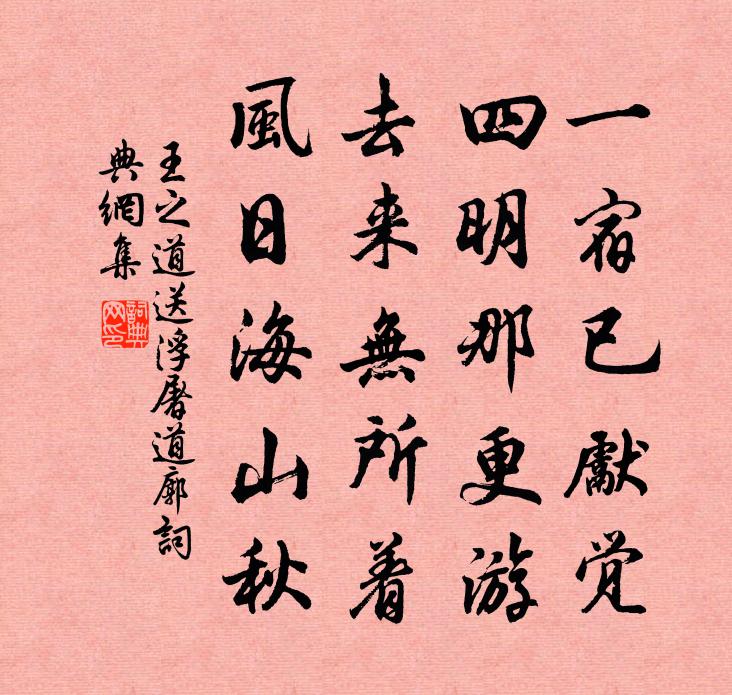 一宿已獻觉
四明那更游
去来無所着
風日海山秋
王之道送浮屠道廓詞
典網集
詞典
网印